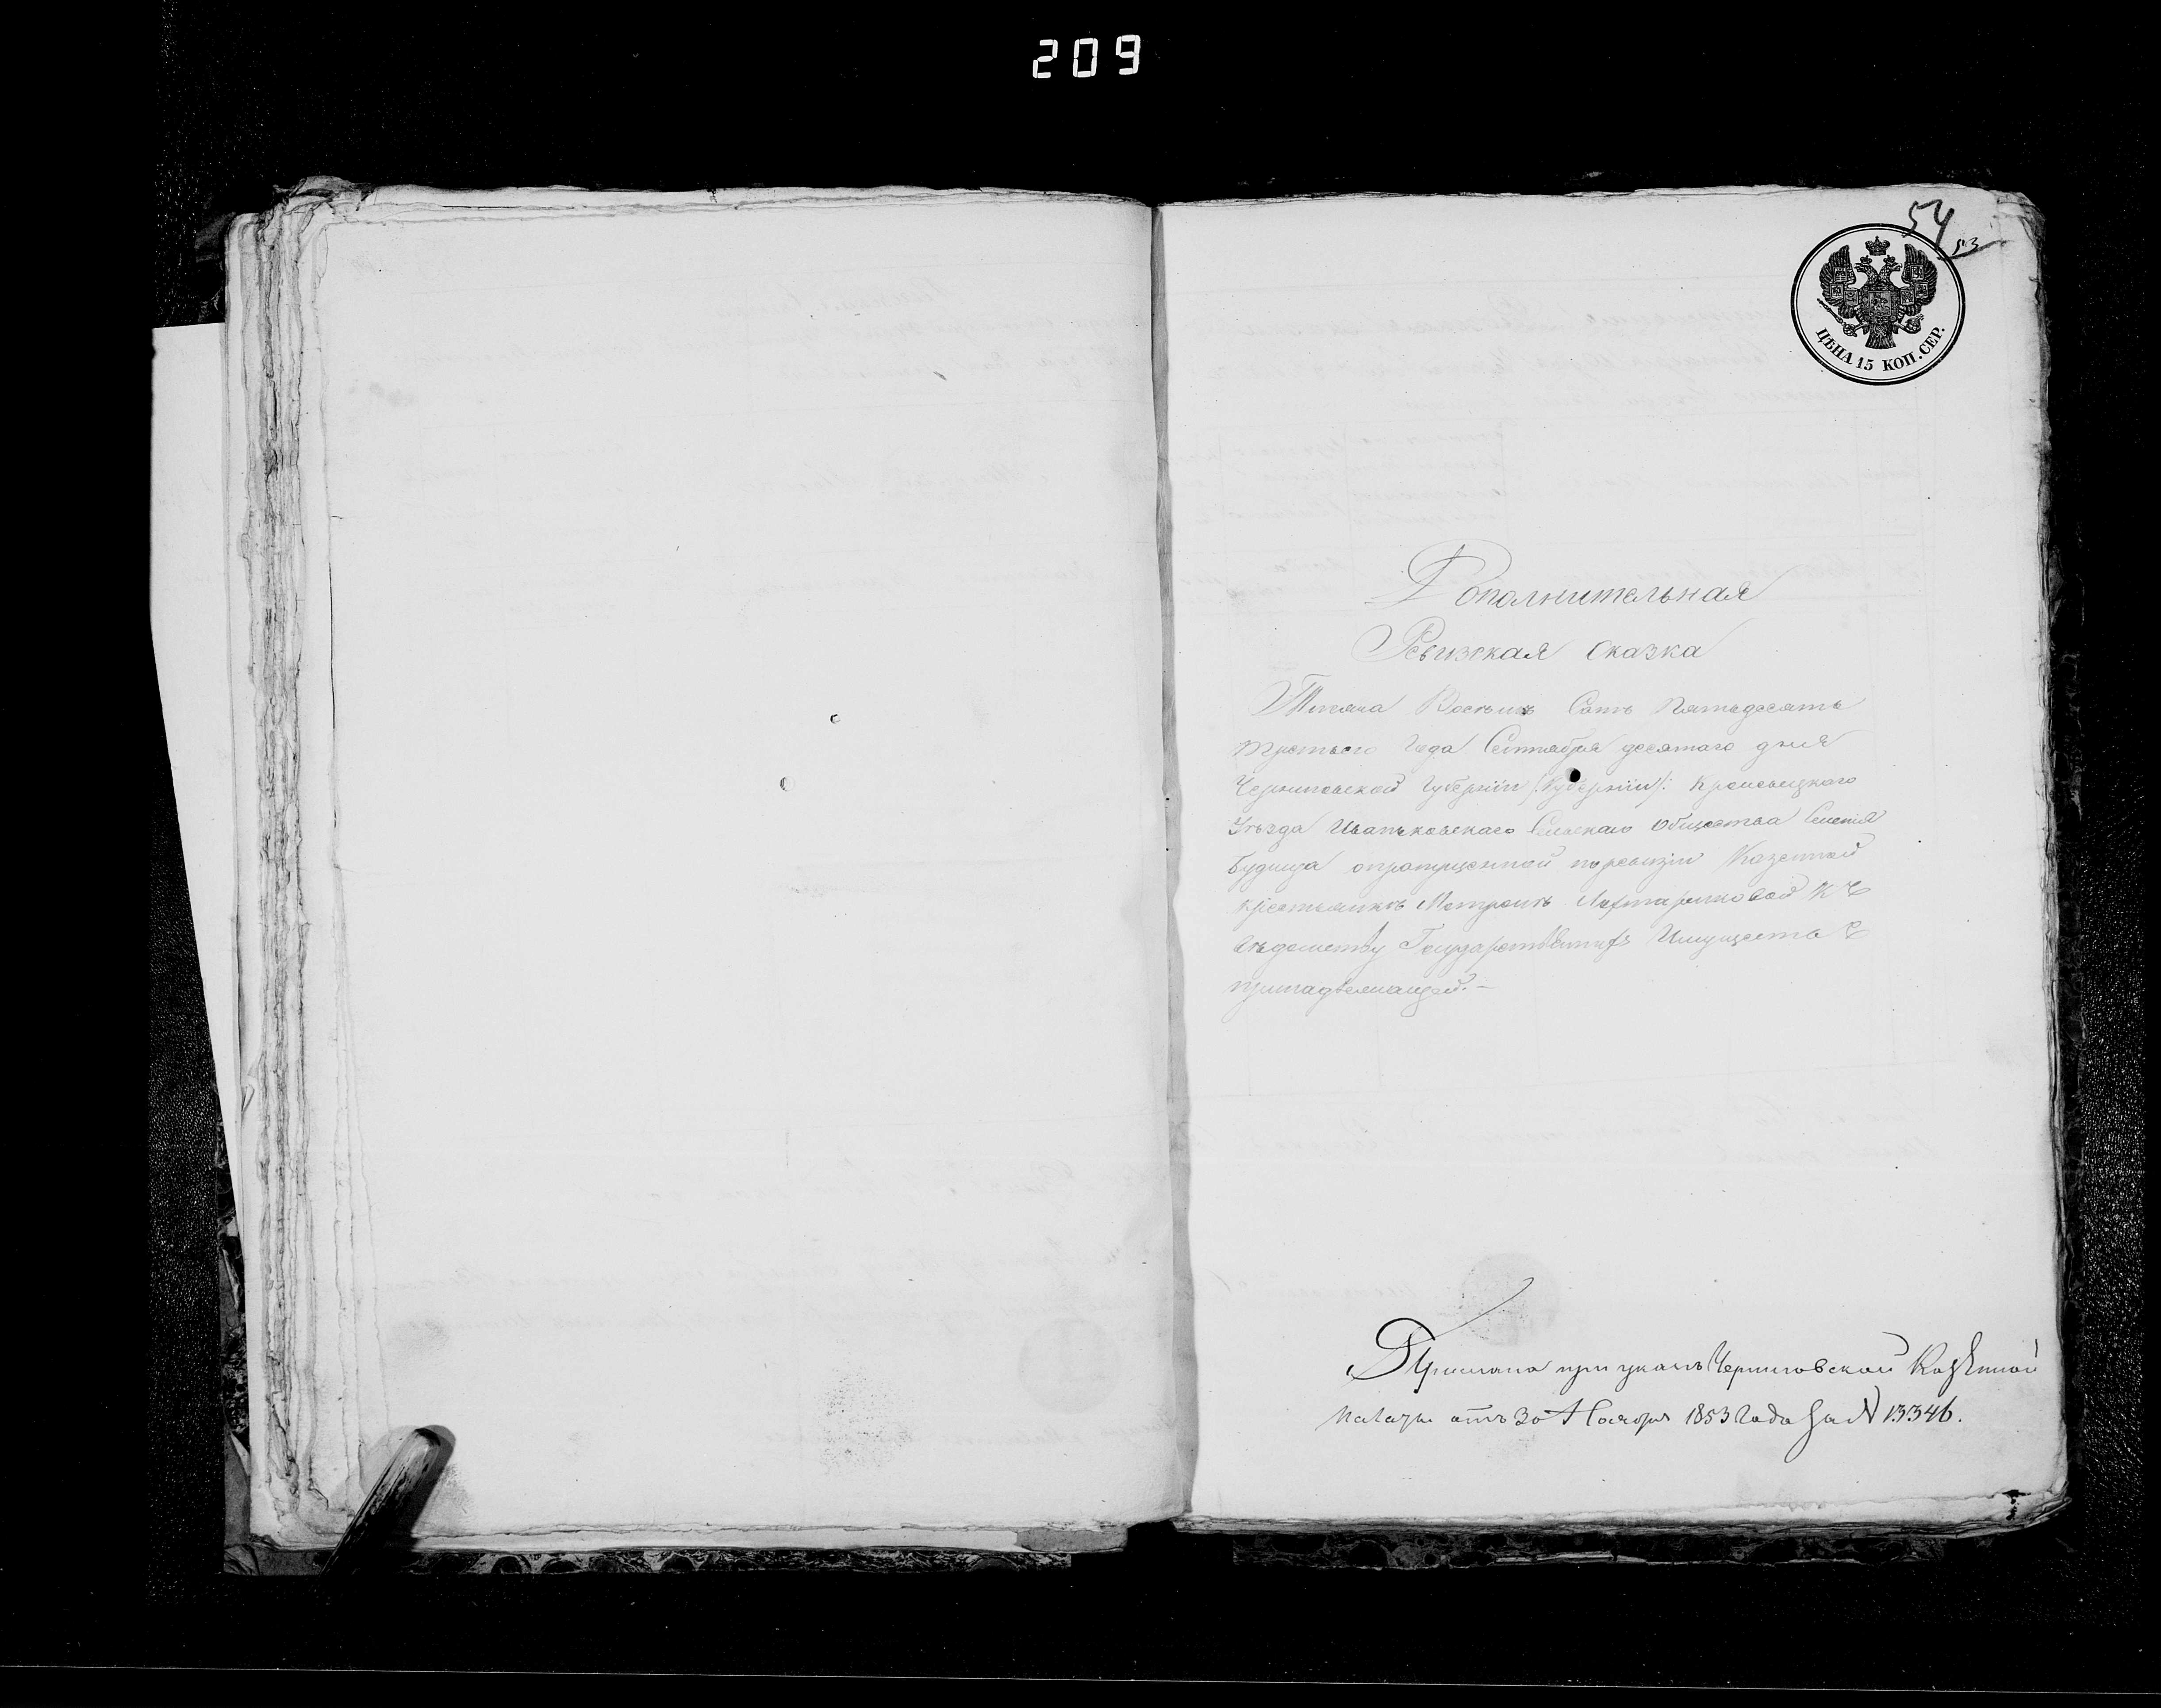 209
54
53
ЦѢНА 15 КОП. СЕР.
Дополнительная
Ревизская Сказка
Тысяча Восемь Сотъ Пятьдесятъ
третьего Года Сентября десятого дня
Черниговской Губерніи /:Губерніи/: Кролевецкого
Уѣзда Иваньковскаго Сельскаго Общества Селенія
Будища опропущенной поревизіи Казенной
крестьянкѣ Мотронѣ къ
вѣдомству Государственныхъ Имуществъ
принадлежащей.—
Прислана при указѣ Черниговской Казенной
палаты отъ 30 Ноября 1853 года за № 13346.